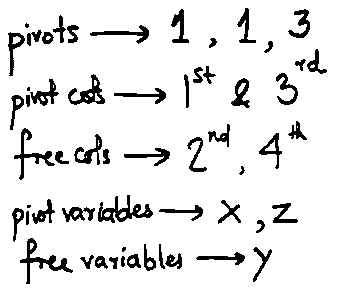 pivots → 1, 1, 3
pivot cols → 1st & 3rd
free cols → 2nd, 4th
pivot variables → x, z
free variables → y